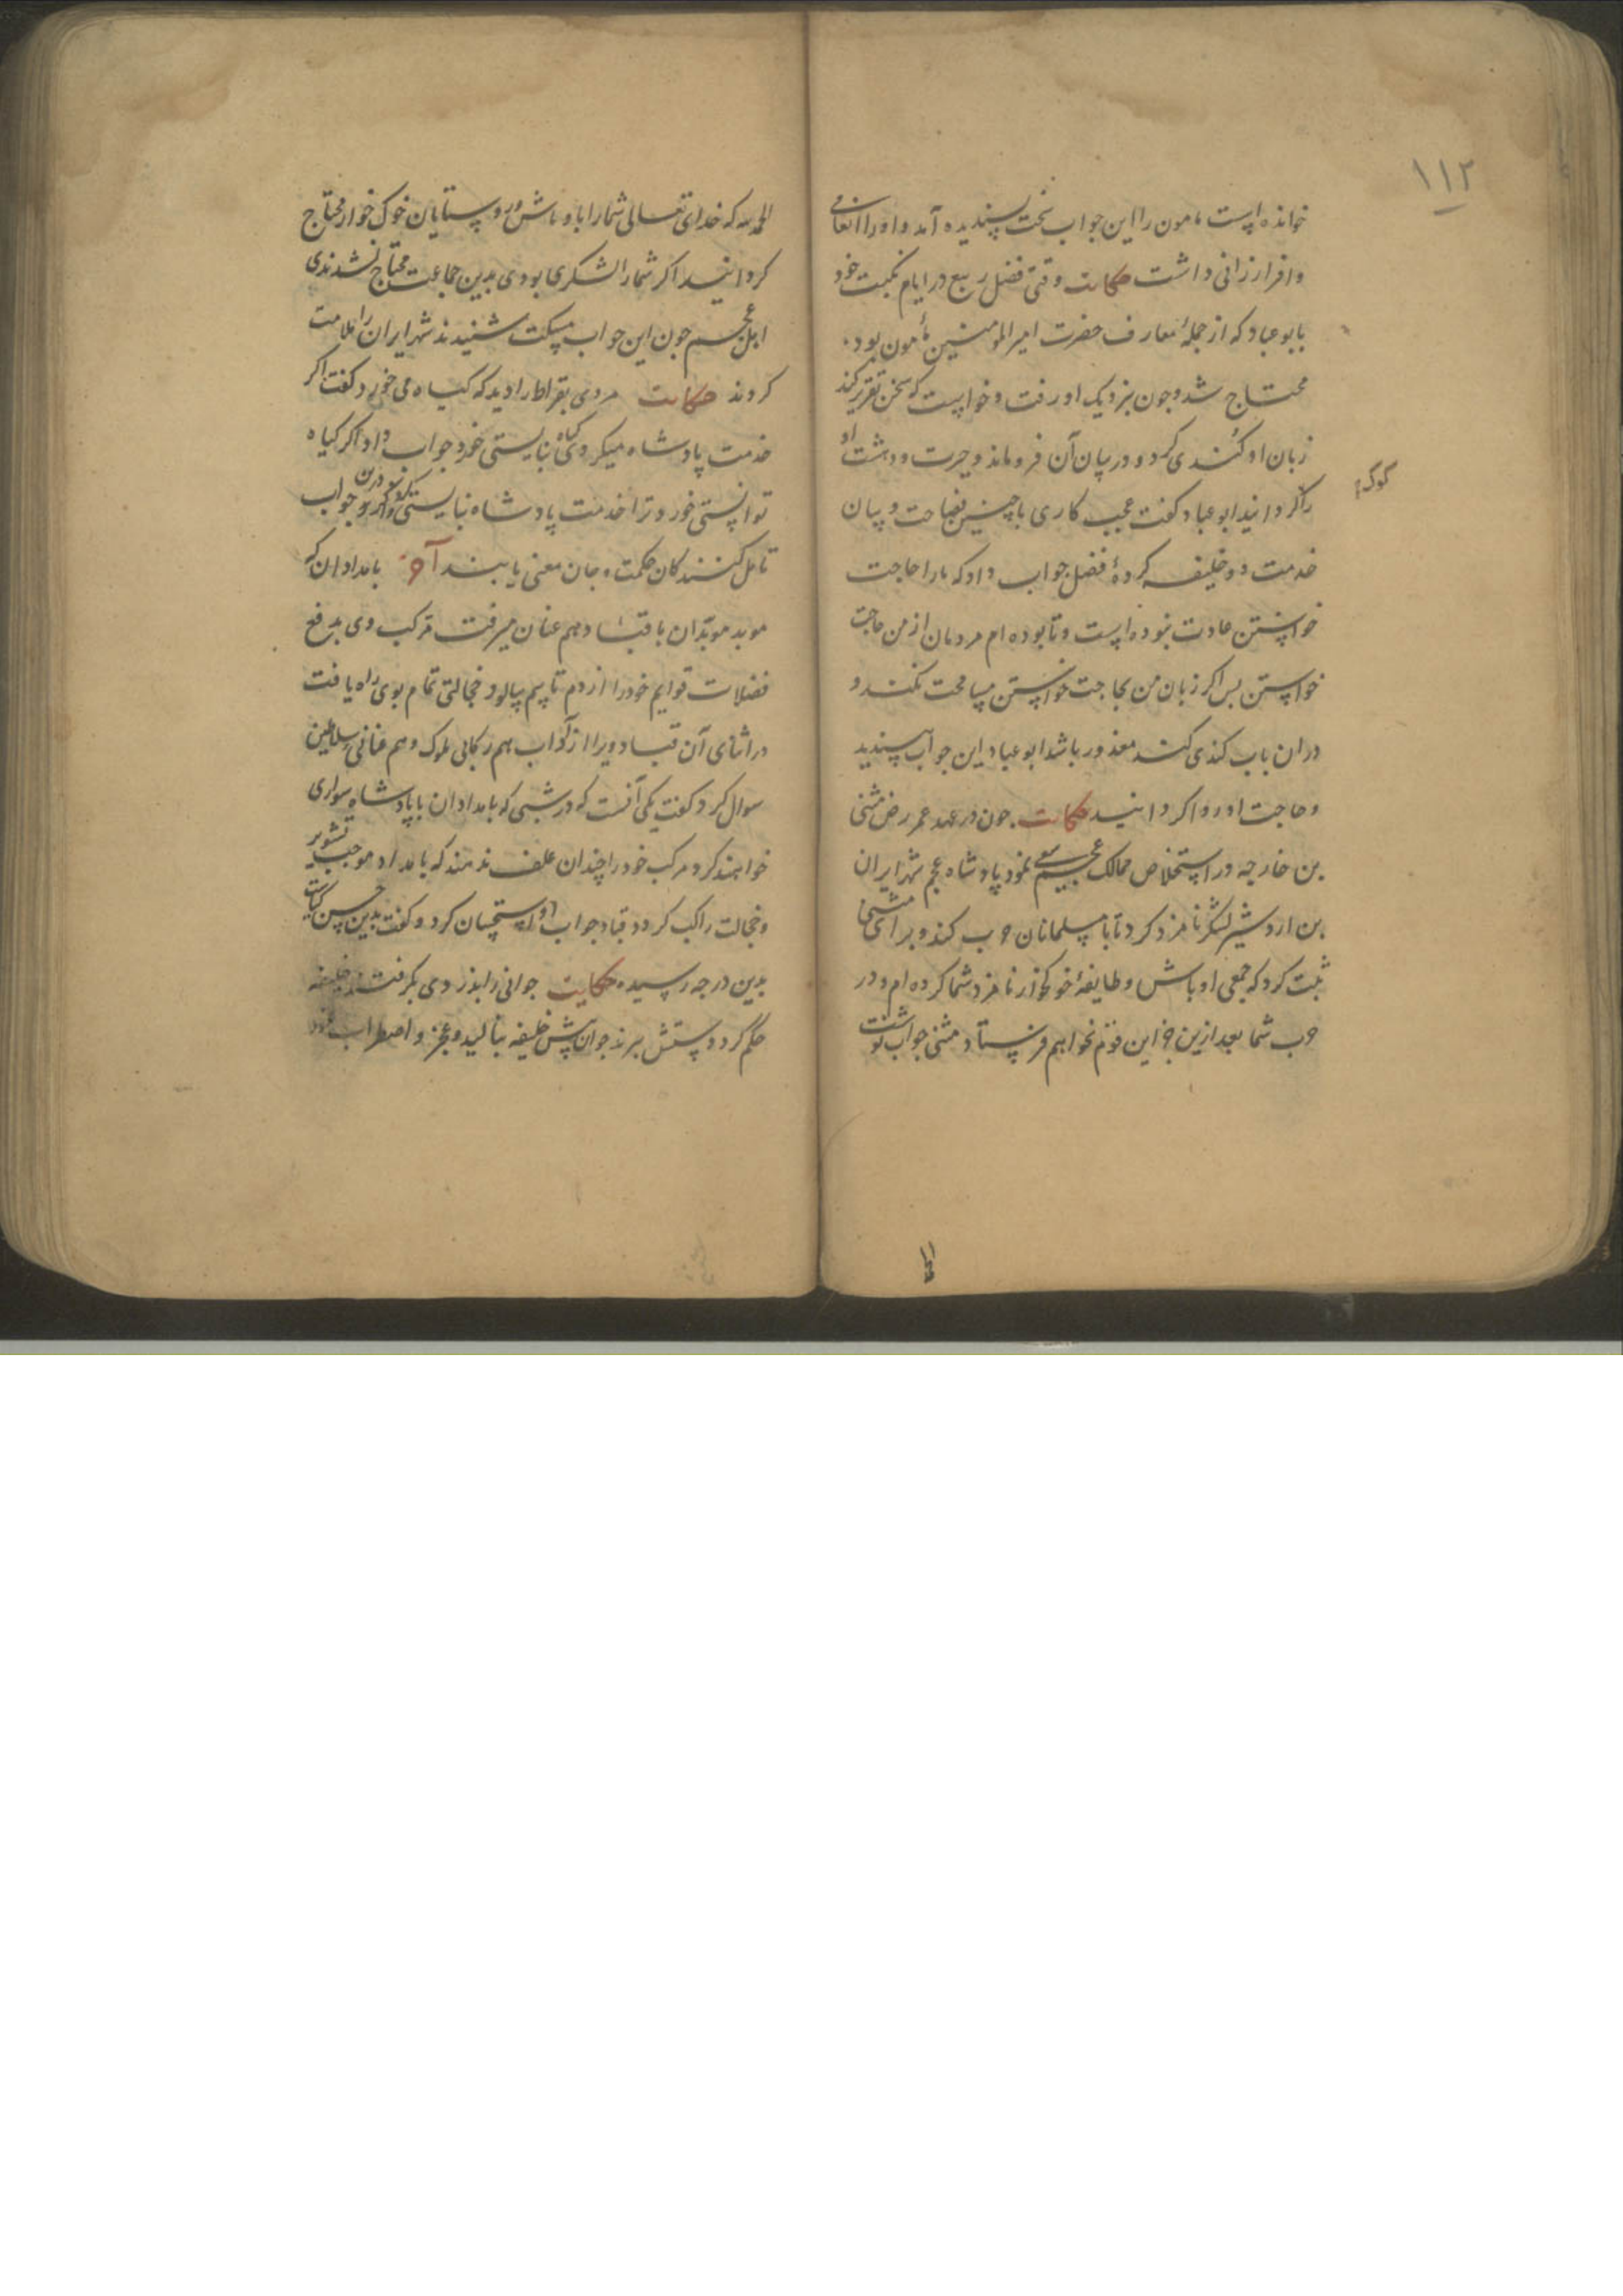 ۱۱۲
خوانده است مامون را این جواب سخت پسندیده آمد و او را انعامی
وافر ارزانی داشت حکایت وقتی فضل ربیع در ایام نکبت خود
بابوعباد که از جملهٔ معارف حضرت امیر المومنین مأمون بود
محتاج شد و جون بنزدیک او رفت و خواست که سخن تقریر کند
زبان او کُندی کرد و در بیان آن فرو ماند و حیرت و دهشت او
را کردانید ابوعباد کفت عجب کاری با چنین فصاحت و بیان
خدمت دو خلیفه کردهٔ فضل جواب داد که ما را حاجت
خواستن عادت نبوده است و تا بوده ام مردمان از من حاجت
خواستن بس اکر زبان من بحاجت خواستن مسامحت نکند و
دران باب کندی کند معذور باشد ابوعباد این جواب بسندید
و حاجت او روا کردانید حکایت جون در عهد عمر رض مثنی
بن خارجه در استخلاص ممالک عجم سعی نمود پادشاه عجم شهرایران
بن اردشیر لشکر نامزد کرد تا با مسلمانان حرب کند و برای مثنی
ثبت کرد که جمعی اوباش و طایفهٔ خوکخوار نامزد شما کرده ام و در
حرب شما بعد ازین جز این قوم نخواهم فرستاد مثنی جواب نوشت
الحمد لله که خدای تعالی شما را باوباش و روستایان خوک خوار محتاج
کردانید اکر شما را لشکری بودی بدین جماعت محتاج نشدندی
اهل عجم جون این جواب مسکت شنیدند شهرایران را ملامت
کردند حکایت مردی بقراط را دید که کیاه می خورد کفت اکر
خدمت پادشاه میکردی کیاه نبایستی خورد جواب داد اکر کیاه
توانستی خورد ترا خدمت پادشاه نبایستی کرد جواب
تامل کنندکان حکمت و جان معنی یابند آخر بامدادان که
موبد موبدان با قباد هم عنان میرفت مرکب وی بدفع
فضلات قوایم خود را از دم تا سم بیالود و خجالتی تمام بوی راه یافت
در اثنای آن قباد ویرا از آداب هم رکابی ملوک و هم عنانی سلاطین
سوال کرد کفت یکی آنست که در شبی که بامدادان با پادشاه سواری
خواهند کرد مرکب خود را چندان علف ندهند که بامداد موجب تشویر
و خجالت راکب کردد قباد جواب او را استحسان کرد و کفت بدین حسن کیاست
بدین درجه رسیده حکایت جوانی را بدزدی بکرفتند خلیفه
حکم کرد دستش ببرند جوان پیش خلیفه بنالید و عجز و اضطراب نمود